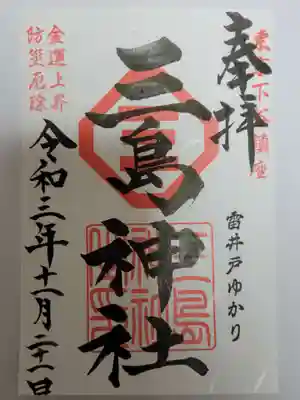 奉拝
東京下谷鎮座
三島神社
雷井戸ゆかり
金運上昇
防災厄除
令和三年十一月二十一日